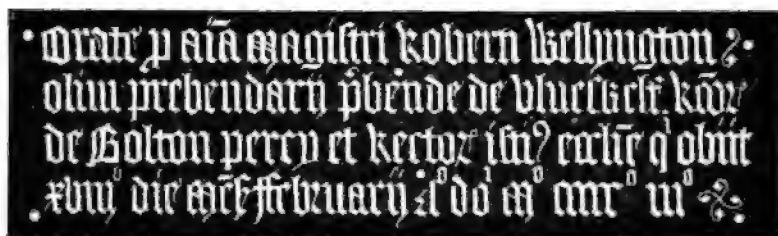 Orate p aīa magistri Roberti Wellyngton
olim prebendarij p̄bende de Ulueskelf
de Bolton percy et Rector istiꝰ ecclīe qⁱ obiit
die ffebruarij aº doⁱ mº